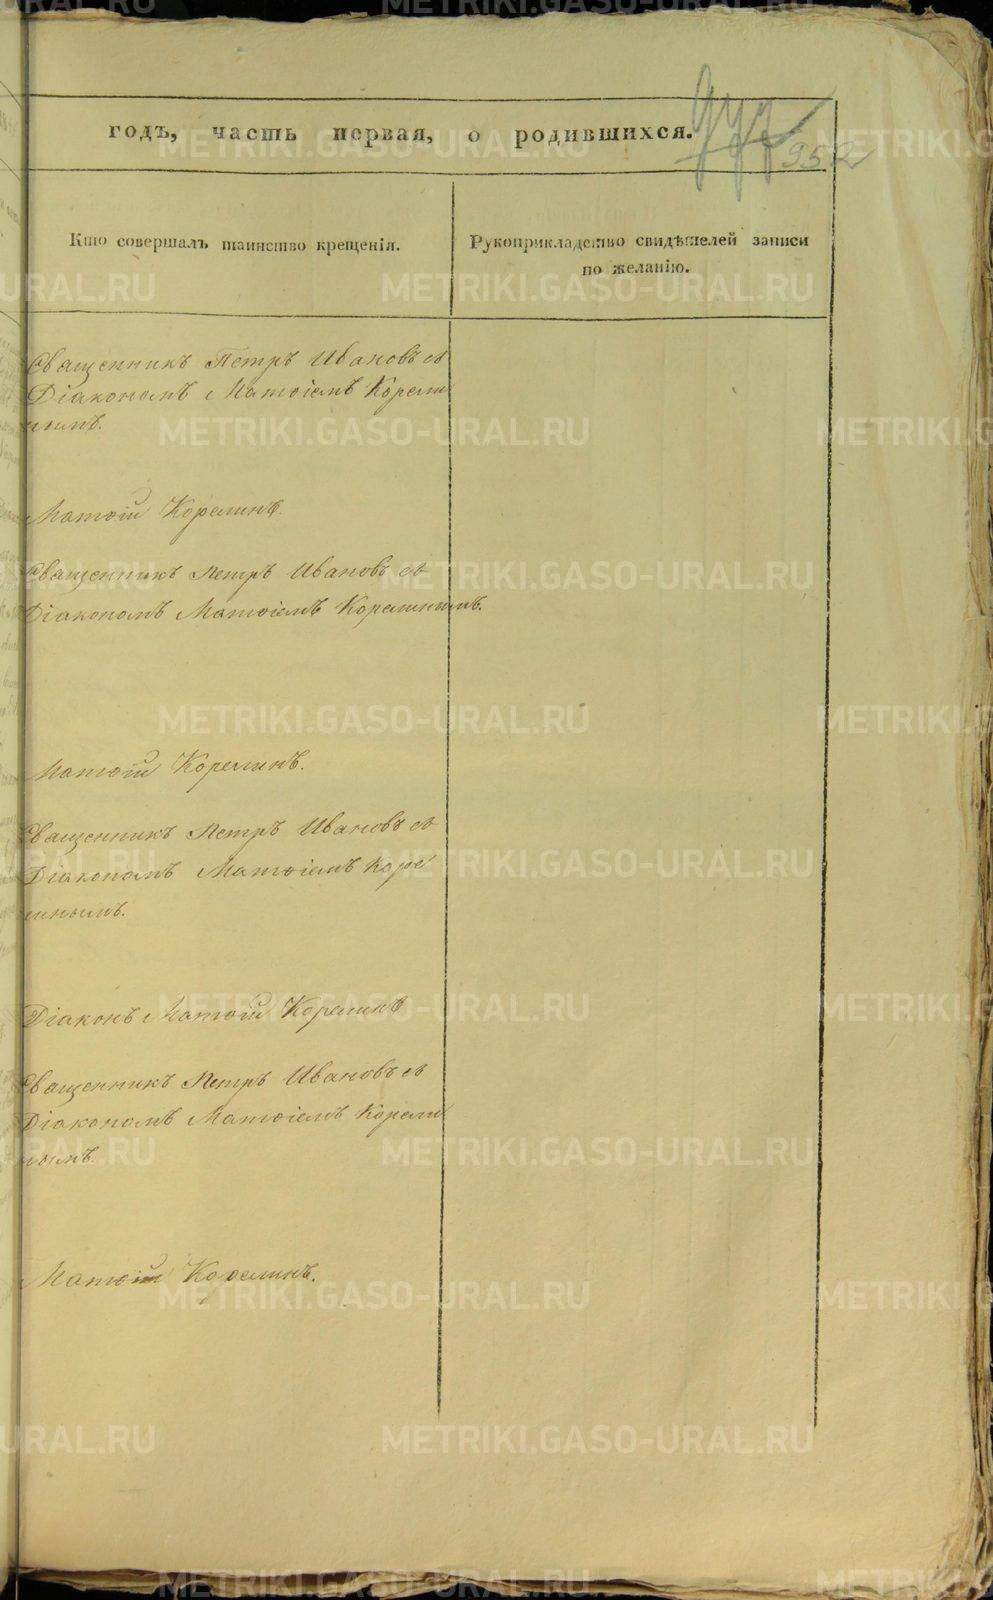 годъ, часть первая, о родившихся.
952
Кто совершалъ таинство крещенія.
Рукоприкладство свидѣтелей записи
по желанію.
Священникъ Петръ Ивановъ съ
Діакономъ Матѳіемъ Корели
нымъ.
Матѳій Корелинъ.
Священникъ Петръ Ивановъ съ
Діакономъ Матѳіемъ Корелинымъ.
Матѳій Корелинъ.
Священникъ Петръ Ивановъ съ
Діакономъ Матѳіемъ Коре
линымъ.
Діаконъ Матѳій Корелинъ
Священникъ Петръ Ивановъ съ
Діакономъ Матѳіемъ Корели
нымъ
Матѳій Корелинъ.
METRIKI.GASO-URAL.RU